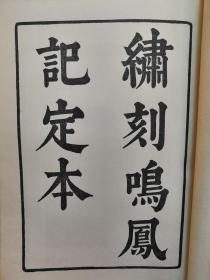 繡刻鳴鳳
記定本